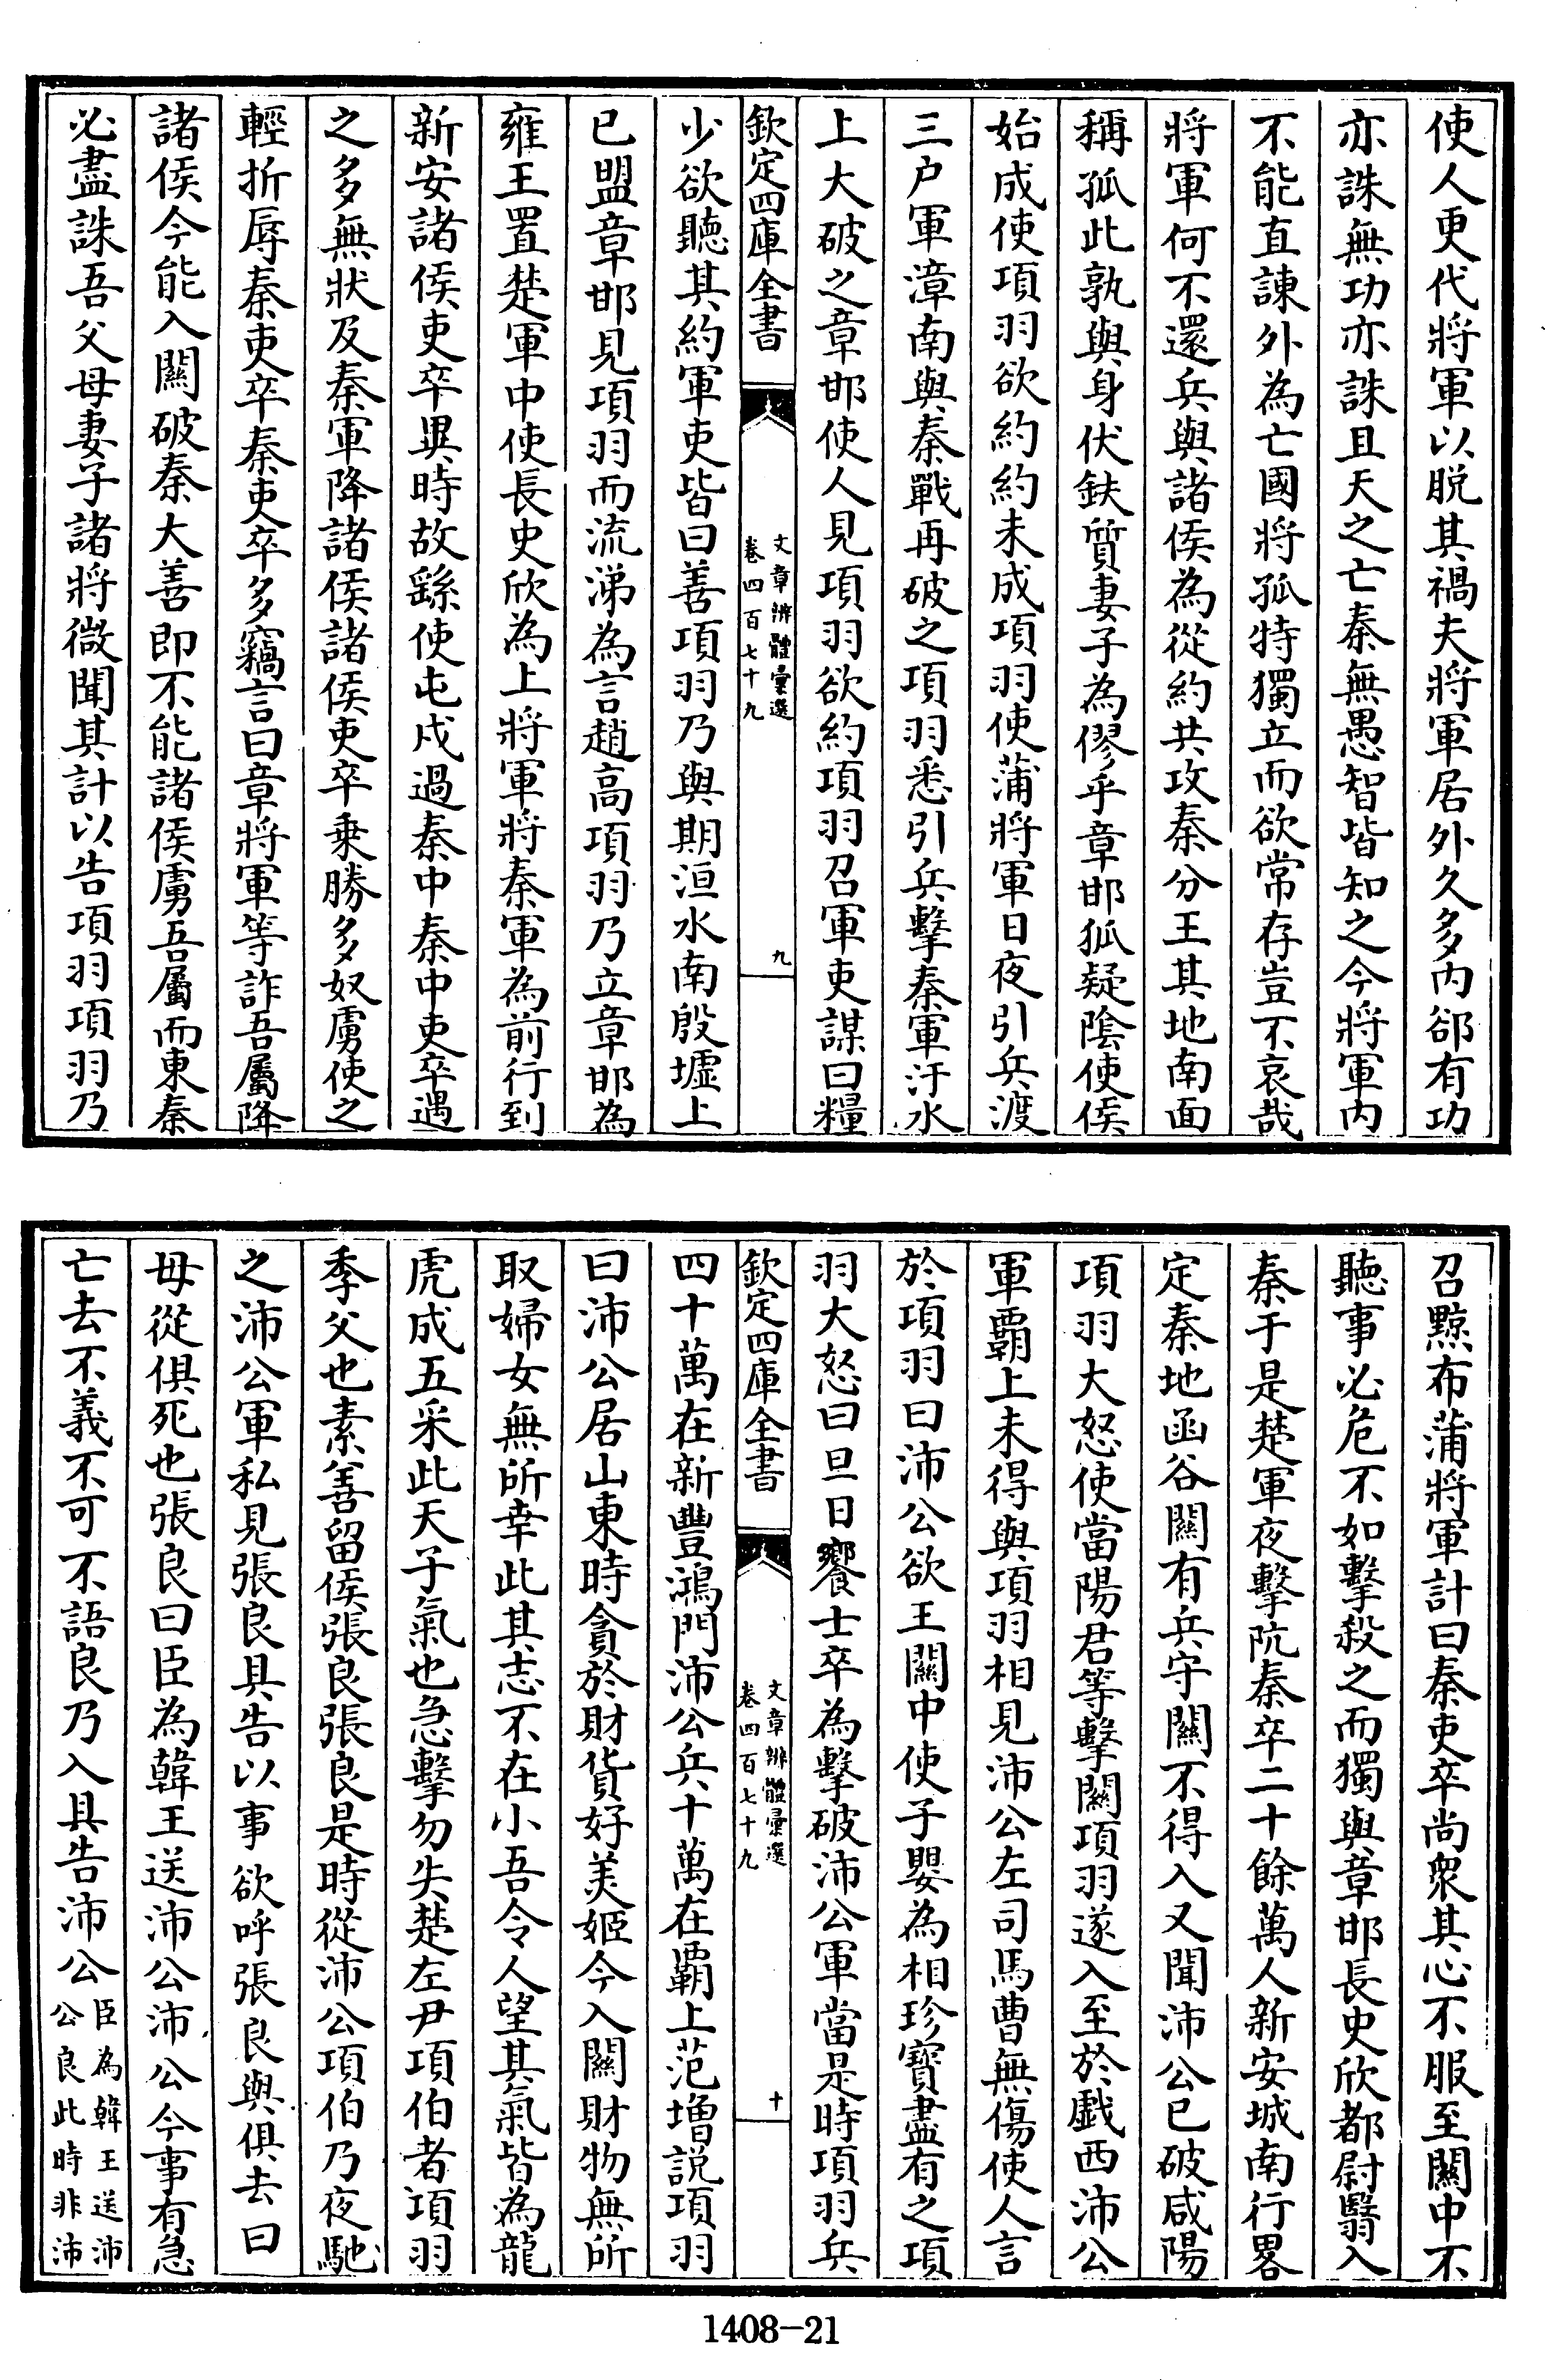 使人更代將軍以脱其禍夫將軍居外久多内郤有功
亦誅無功亦誅且天之亡秦無愚智皆知之今將軍内
不能直諫外為亡國將孤特獨立而欲常存豈不哀哉
將軍何不還兵與諸侯為從約共攻秦分王其地南面
稱孤此孰與身伏鈇質妻子為僇乎章邯狐疑隂使侯
始成使項羽欲約約未成項羽使蒲將軍日夜引兵渡
三户軍漳南與秦戰再破之項羽悉引兵擊秦軍汙水
上大破之章邯使人見項羽欲約項羽召軍吏謀曰糧
欽定四庫全書
文章辨體彙選
卷四百七十九
九
少欲聽其約軍吏皆曰善項羽乃與期洹水南殷墟上
已盟章邯見項羽而流涕為言趙高項羽乃立章邯為
雍王置楚軍中使長史欣為上將軍將秦軍為前行到
新安諸侯吏卒異時故繇使屯戍過秦中秦中吏卒遇
之多無狀及秦軍降諸侯諸侯吏卒乗勝多奴虜使之
輕折辱秦吏卒秦吏卒多竊言曰章將軍等詐吾屬降
諸侯今能入關破秦大善即不能諸侯虜吾屬而東秦
必盡誅吾父母妻子諸將微聞其計以告項羽項羽乃
召黥布蒲將軍計曰秦吏卒尚衆其心不服至關中不
聽事必危不如擊殺之而獨與章邯長史欣都尉翳入
秦于是楚軍夜擊阬秦卒二十餘萬人新安城南行畧
定秦地函谷關有兵守關不得入又聞沛公已破咸陽
項羽大怒使當陽君等擊關項羽遂入至於戲西沛公
軍霸上未得與項羽相見沛公左司馬曹無傷使人言
於項羽曰沛公欲王關中使子嬰為相珍寳盡有之項
羽大怒曰旦日饗士卒為擊破沛公軍當是時項羽兵
欽定四庫全書
文章辨體彙選
卷四百七十九
十
四十萬在新豐鴻門沛公兵十萬在霸上范增説項羽
曰沛公居山東時貪於財貨好美姬今入關財物無所
取婦女無所幸此其志不在小吾令人望其氣皆為龍
虎成五采此天子氣也急擊勿失楚左尹項伯者項羽
季父也素善留侯張良張良是時從沛公項伯乃夜馳
之沛公軍私見張良具告以事欲呼張良與俱去曰
毋從俱死也張良曰臣為韓王送沛公沛公今事有急
亡去不義不可不語良乃入具告沛公臣為韓王送沛
公良此時非沛